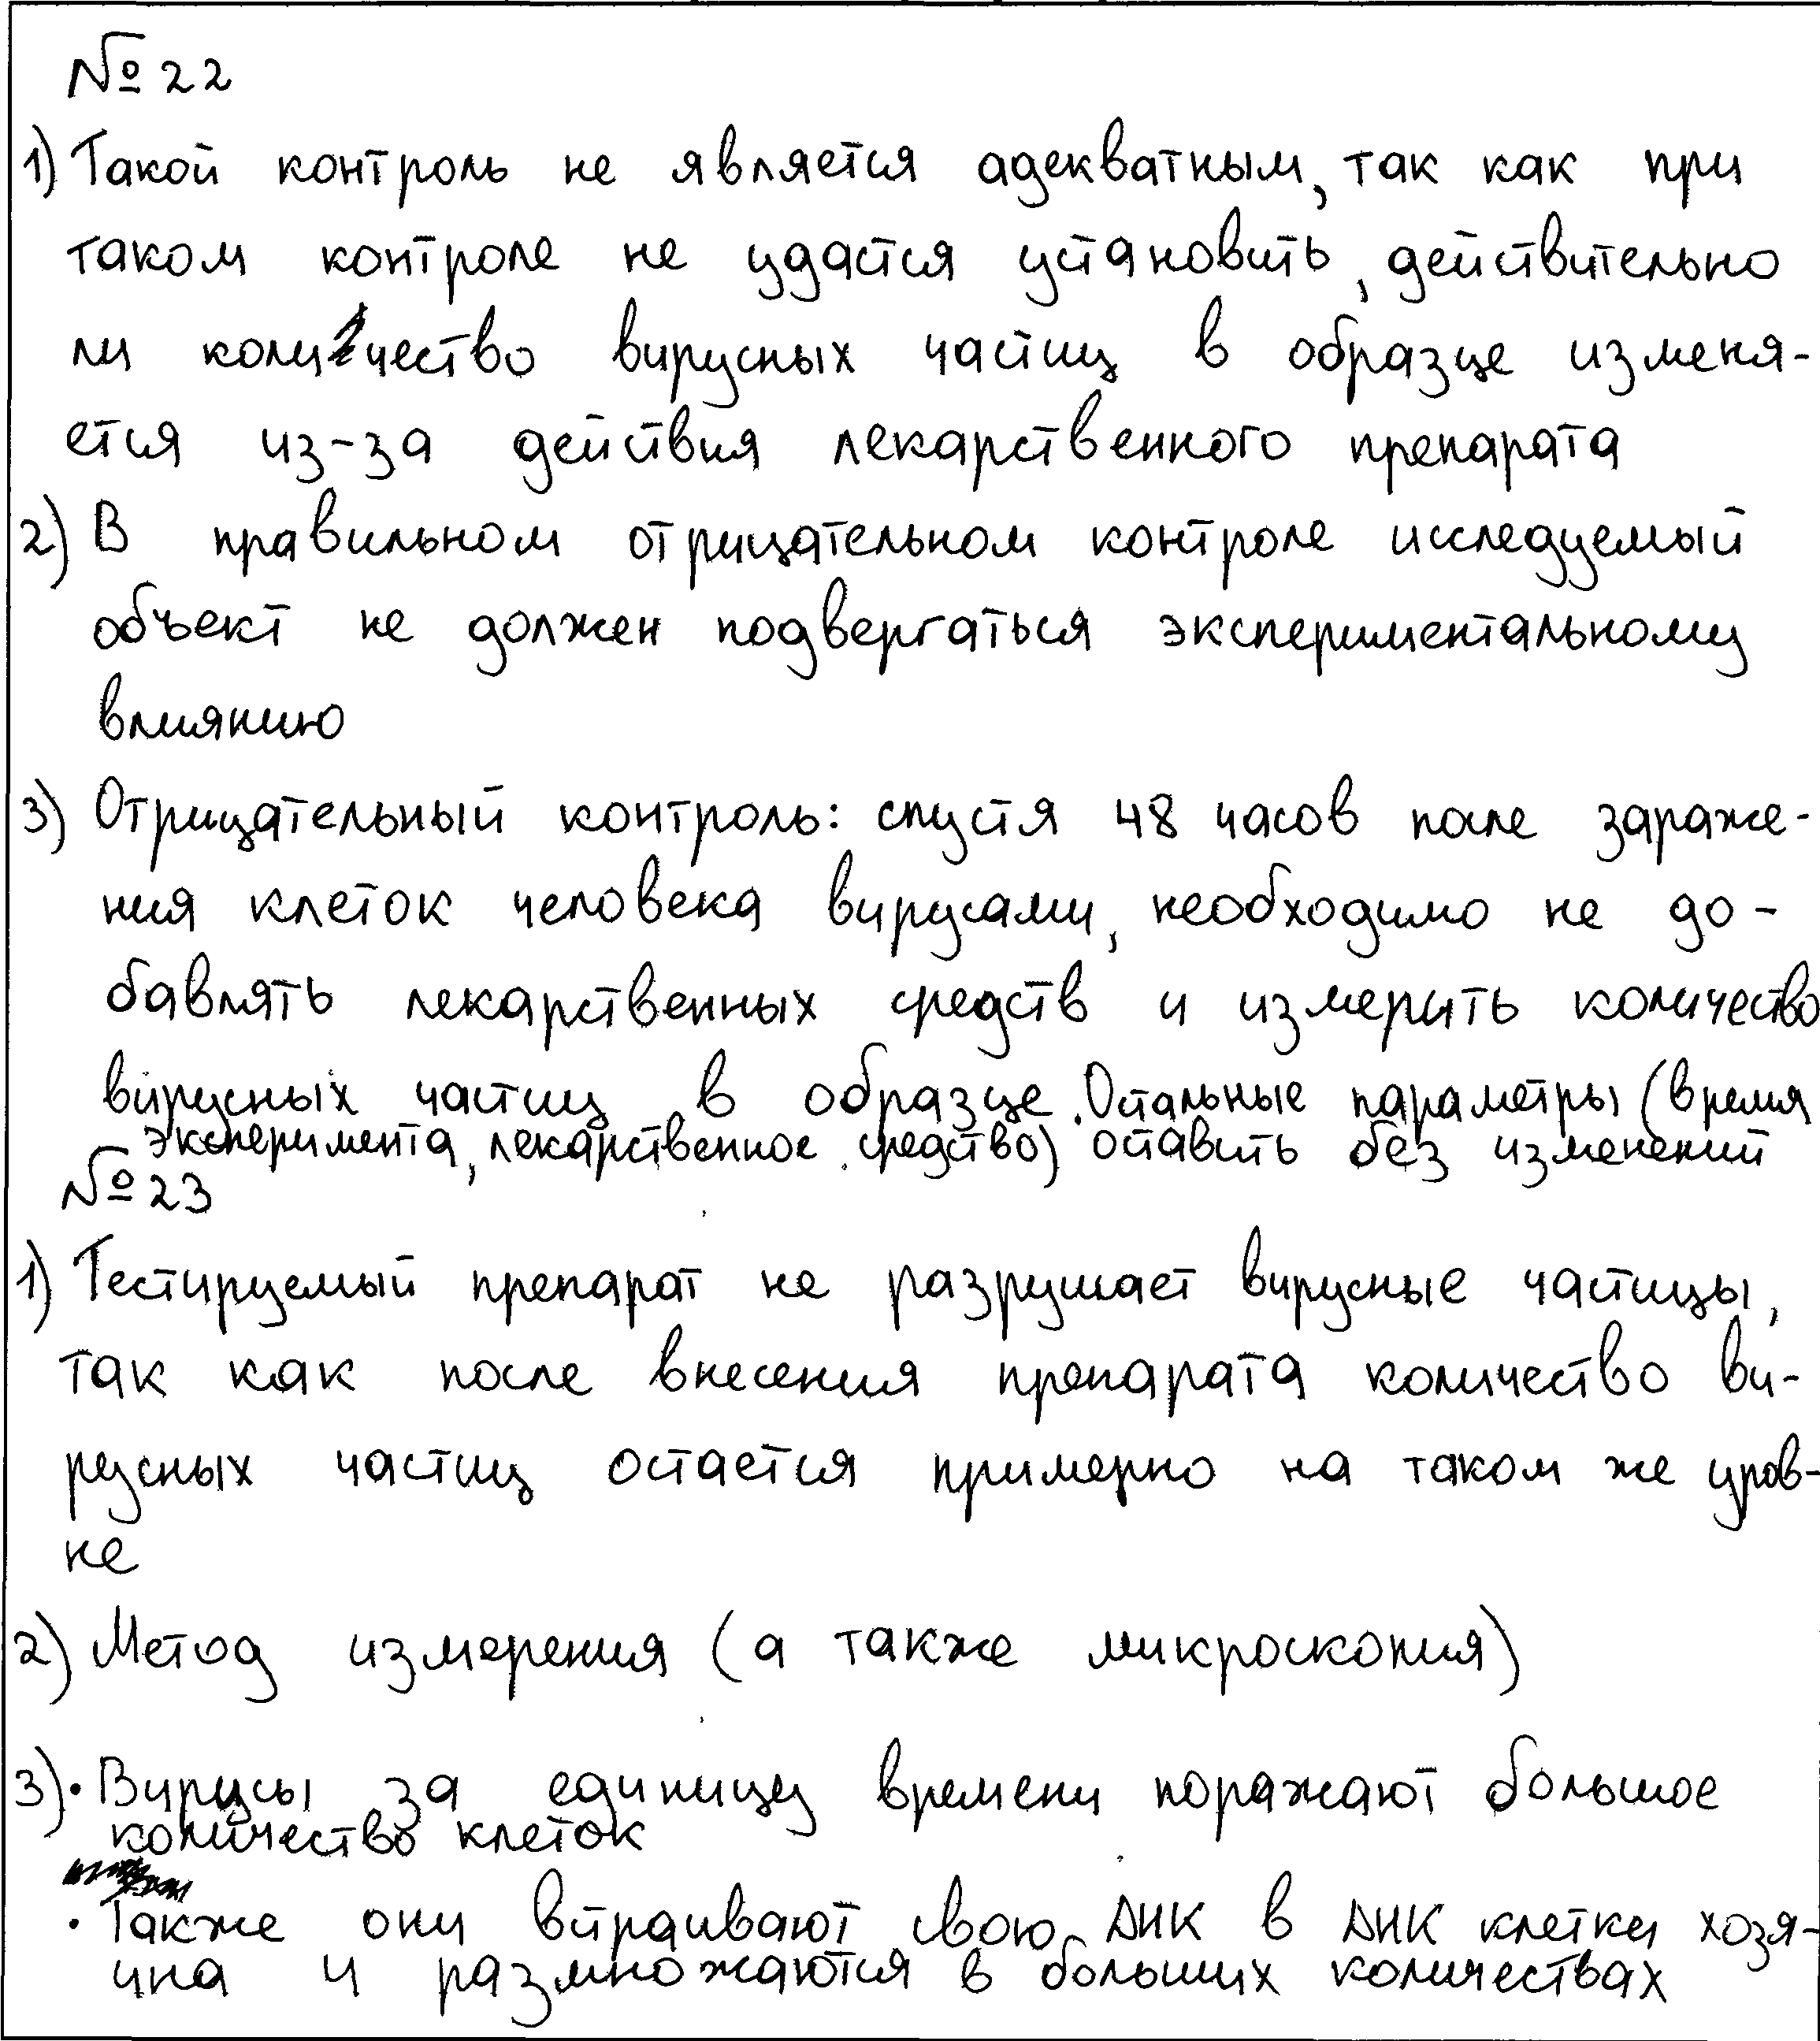 № 22
1) Такой контроль не является адекватным, так как при
таком контроле не удастся установить, действительно
ли количество вирусных частиц в образце изменя-
ется из-за действия лекарственного препарата
2) В правильном отрицательном контроле исследуемый
объект не должен подвергаться экспериментальному
влиянию
3) Отрицательный контроль: спустя 48 часов после зараже-
ния клеток человека вирусами, необходимо не до-
бавлять лекарственных средств и измерить количество
вирусных частиц в образце. Остальные параметры (время
эксперимента, лекарственное средство) оставить без изменений
№ 23
1) Тестируемый препарат не разрушает вирусные частицы,
так как после внесения препарата количество ви-
русных частиц остается примерно на таком же уров-
не
2) Метод измерения (а также микроскопия)
3) • Вирусы за единицу времени поражают большое
количество клеток
• Также они встраивают свою ДНК в ДНК клетки хозя-
ина и размножаются в больших количествах